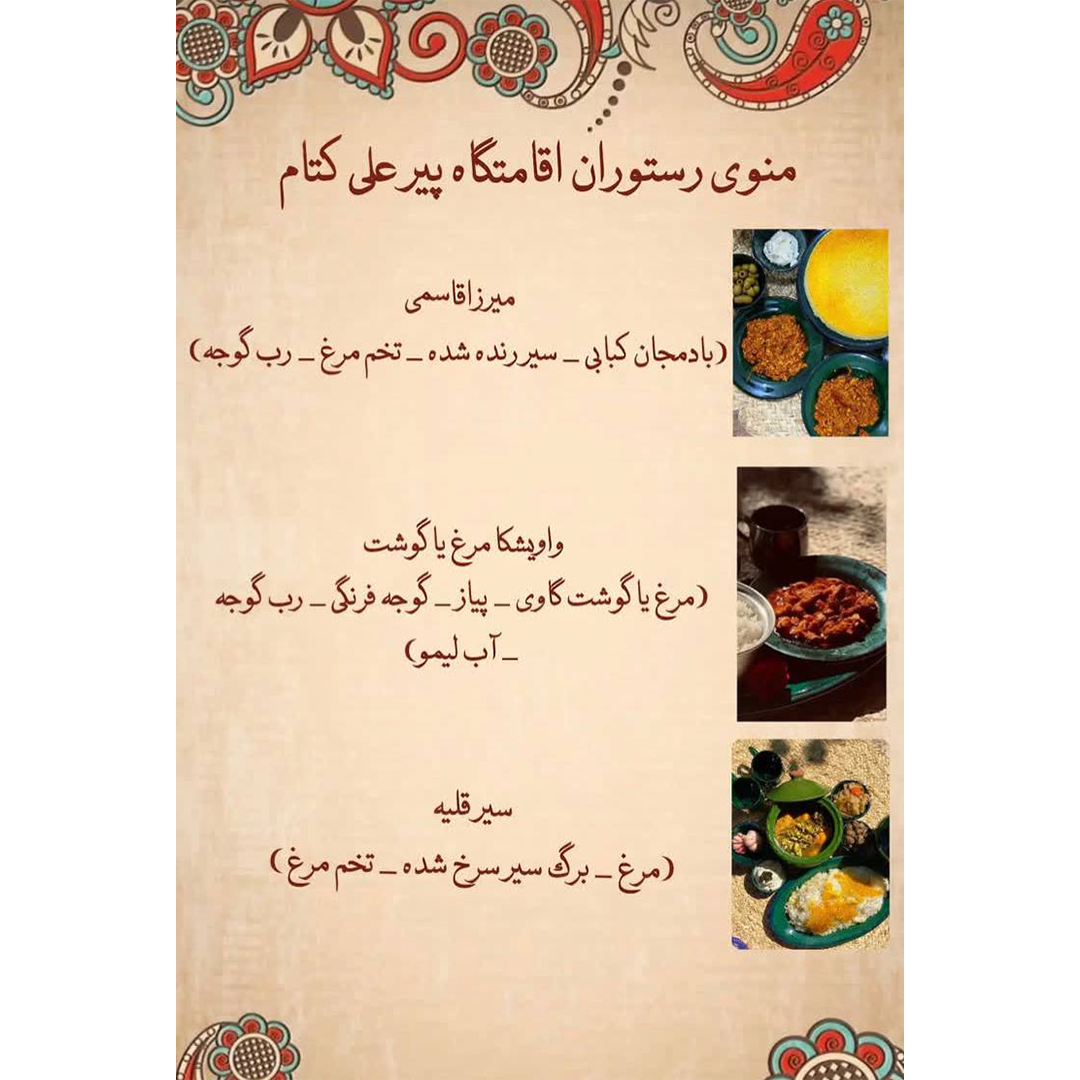 منوی رستوران اقامتگاه پیرعلی کتام
میرزاقاسمی
(بادمجان کبابی _ سیر رنده شده _ تخم مرغ _ رب گوجه)
واویشکا مرغ یا گوشت
(مرغ یا گوشت گاوی _ پیاز _ گوجه فرنگی _ رب گوجه
_ آب لیمو)
سیرقلیه
(مرغ _ برگ سیر سرخ شده _ تخم مرغ )